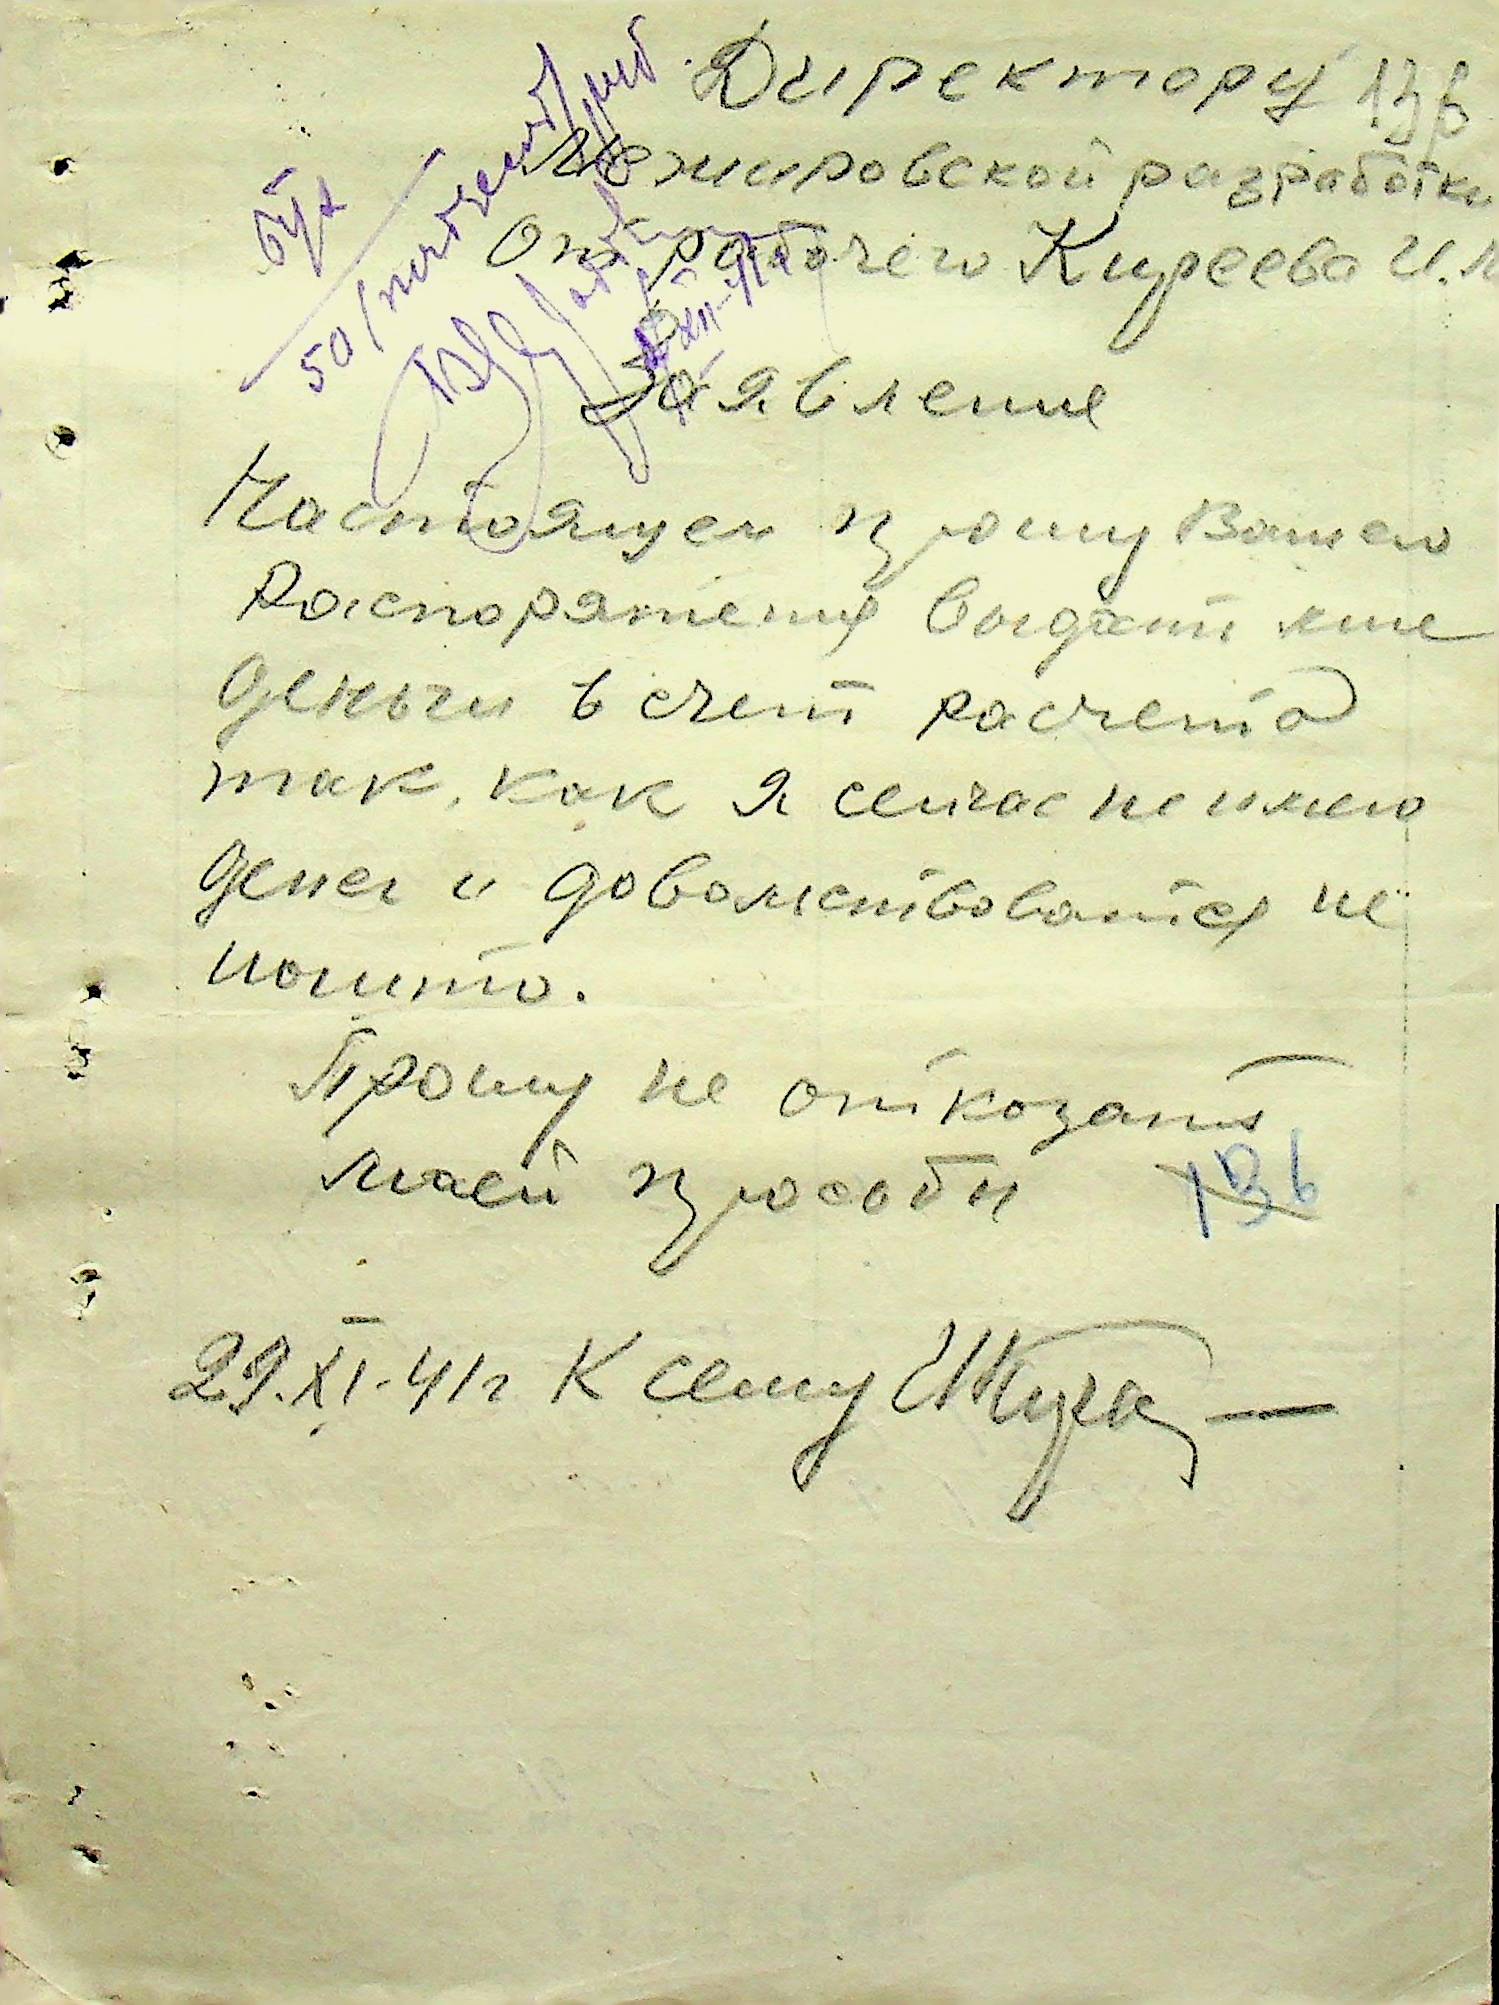 Директору 136
Межировской разработки
От рабочего Киреева И.
бух
50/пятьдесят/руб
XII-41г
Заявление
Настоящем прошу Вашего
Распоряжения выдать мне
деньги в счет расчета
так, как я сейчас не имею
денег и довольствоватся не
начто.
Прошу не отказать
моей прозьби 136
29.XI-41г К сему